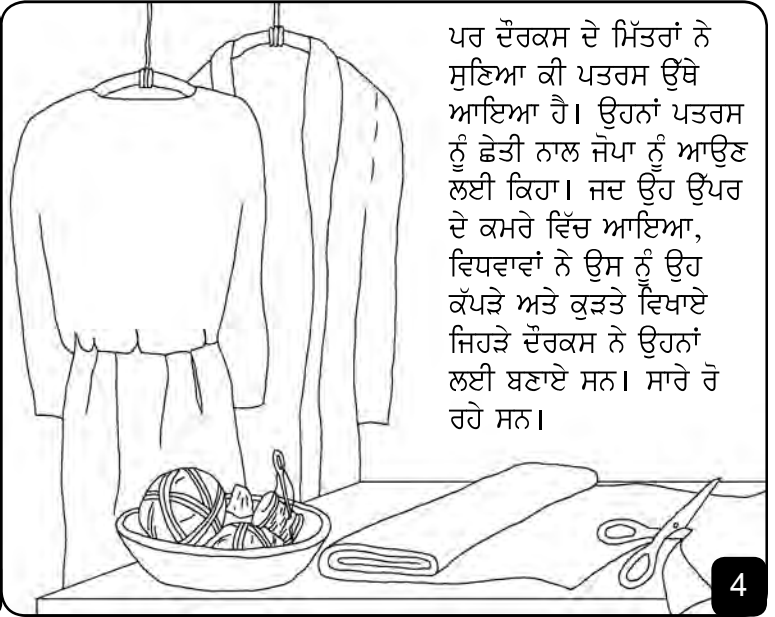 ਪਰ ਦੌਰਕਸ ਦੇ ਮਿੱਤਰਾਂ ਨੇ
ਸੁਣਿਆ ਕੀ ਪਤਰਸ ਉੱਥੇ
ਆਇਆ ਹੈ। ਉਹਨਾਂ ਪਤਰਸ
ਨੂੰ ਛੇਤੀ ਨਾਲ ਜੋਪਾ ਨੂੰ ਆਉਣ
ਲਈ ਕਿਹਾ। ਜਦ ਉਹ ਉੱਪਰ
ਦੇ ਕਮਰੇ ਵਿੱਚ ਆਇਆ,
ਵਿਧਵਾਵਾਂ ਨੇ ਉਸ ਨੂੰ ਉਹ
ਕੱਪੜੇ ਅਤੇ ਕੁੜਤੇ ਵਿਖਾਏ
ਜਿਹੜੇ ਦੌਰਕਸ ਨੇ ਉਹਨਾਂ
ਲਈ ਬਣਾਏ ਸਨ। ਸਾਰੇ ਰੋ
ਰਹੇ ਸਨ।
4